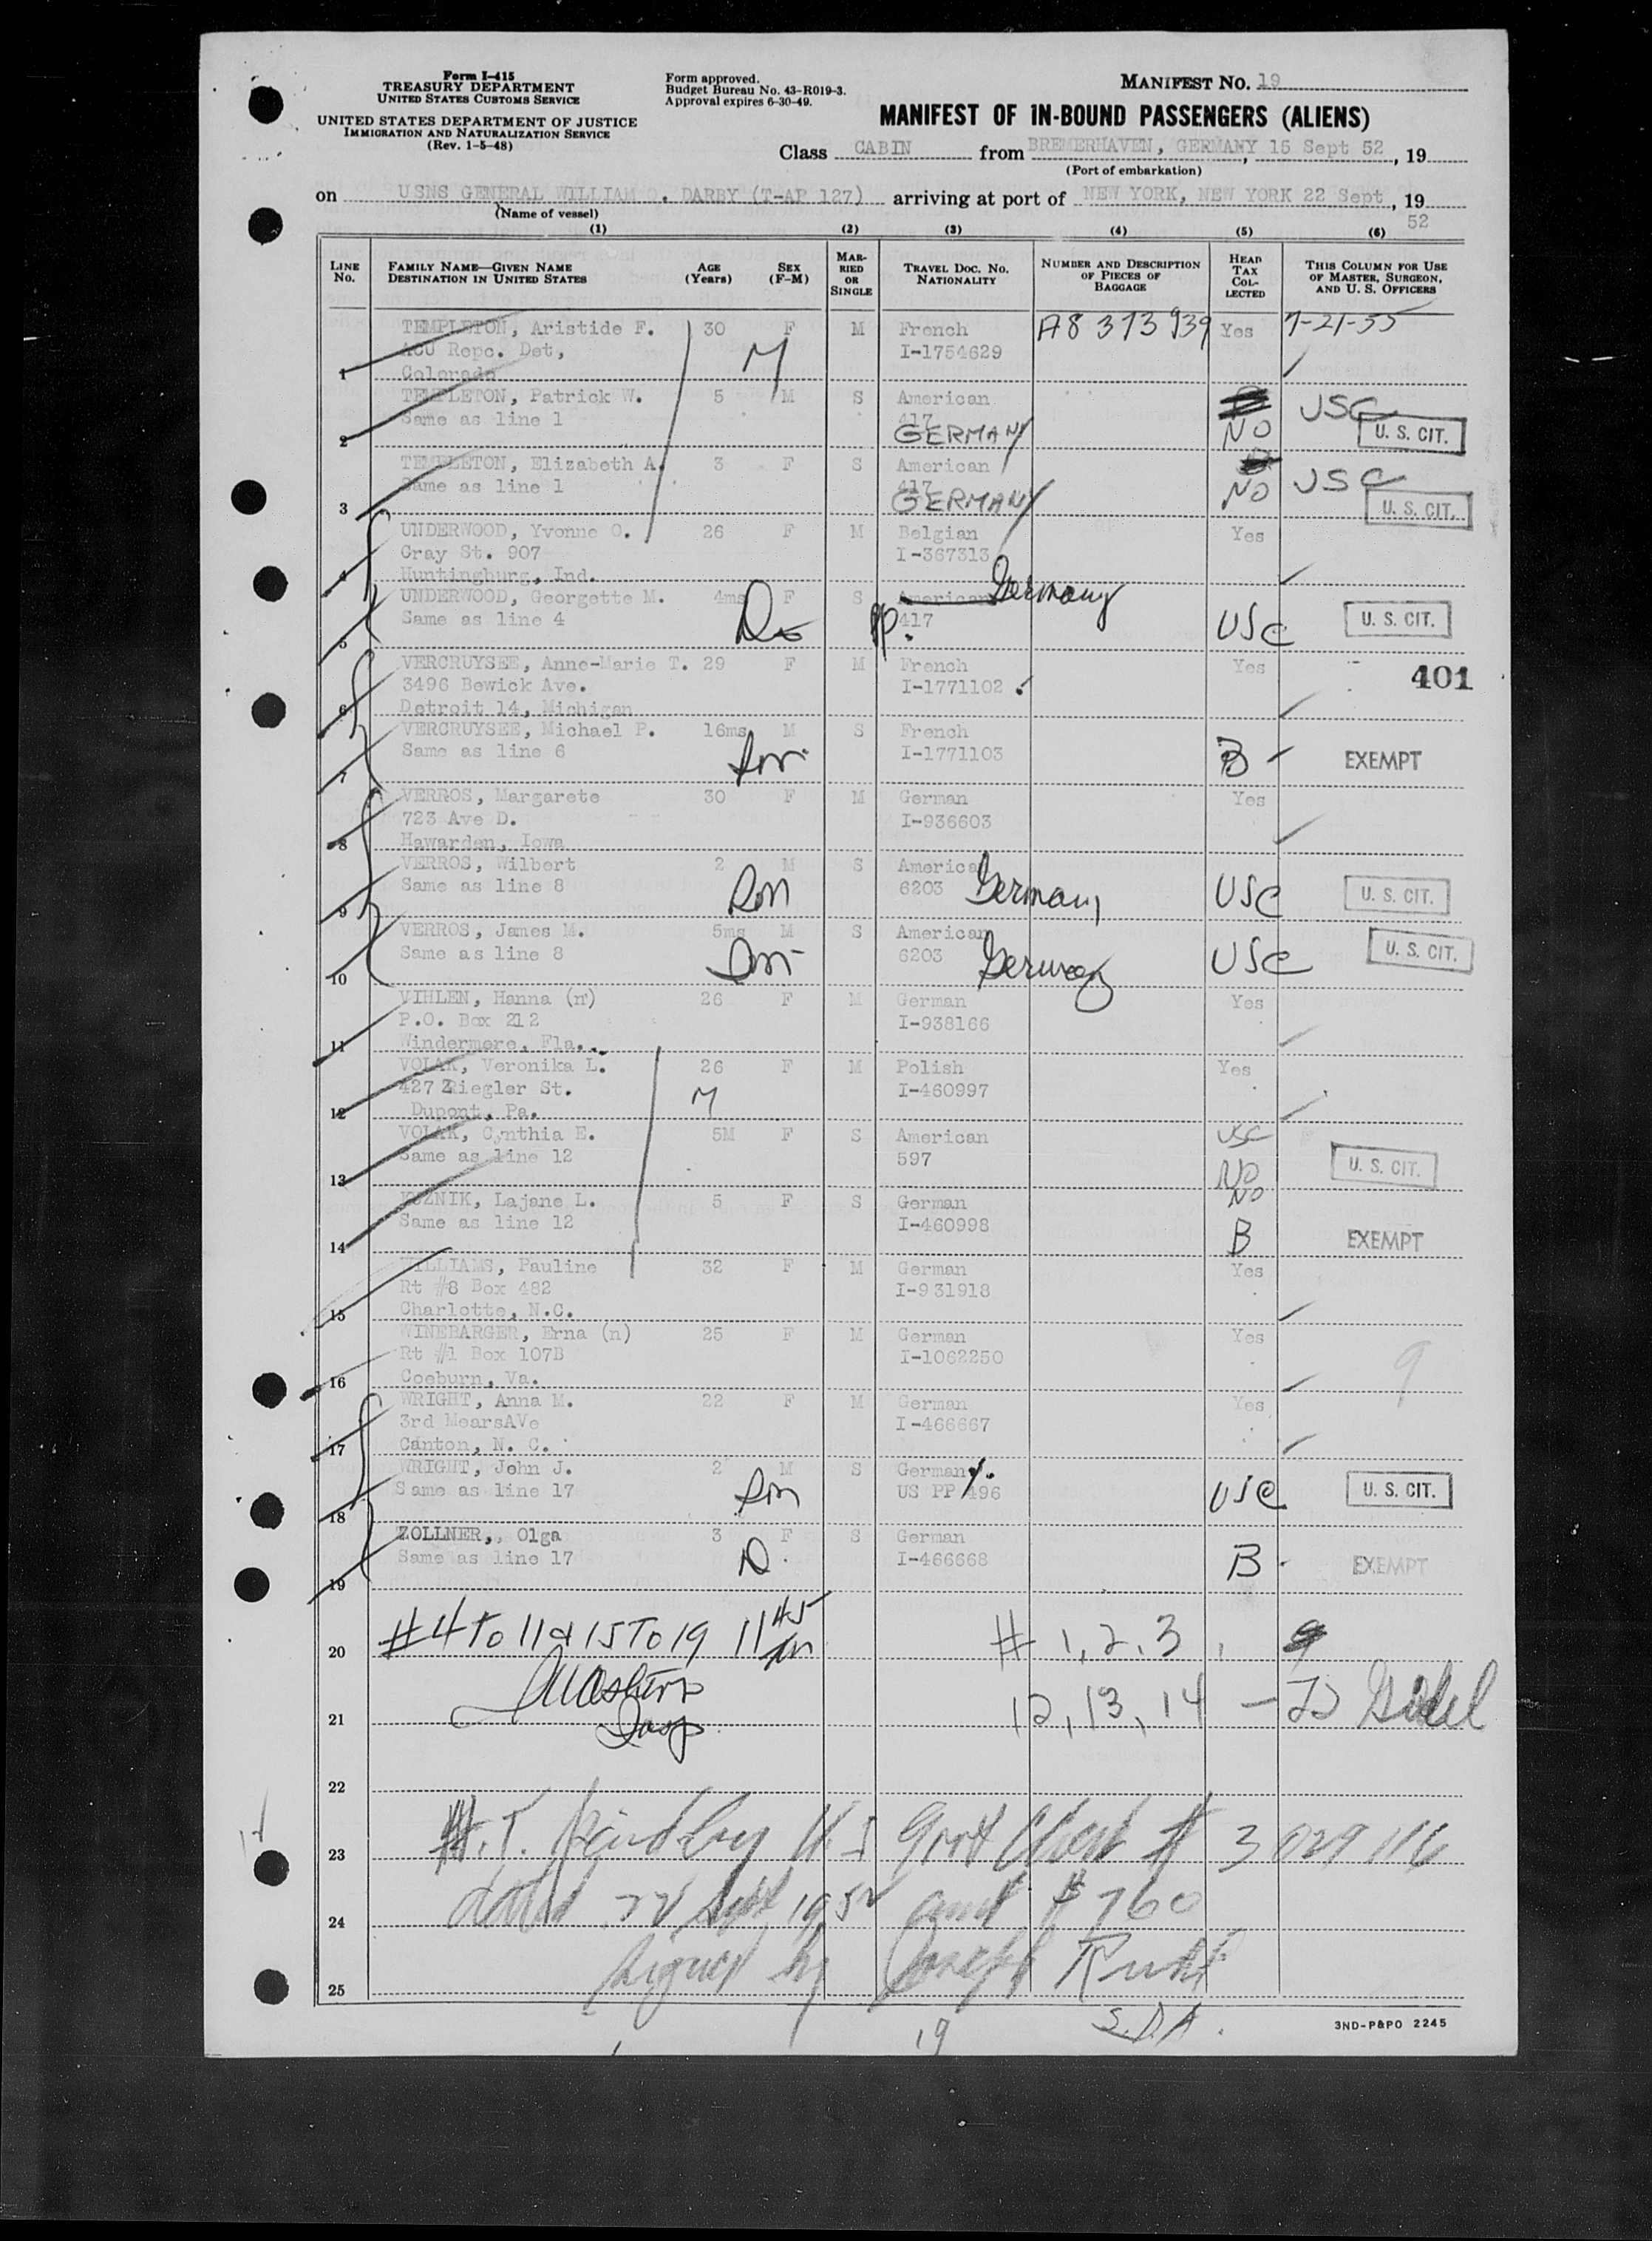 Form I-415
TREASURY DEPARTMENT
UNITED STATES CUSTOMS SERVICE
UNITED STATES DEPARTMENT OF JUSTICE
IMMIGRATION AND NATURALIZATION SERVICE
(Rev. 1-5-48)
Form approved.
Budget Bureau No. 43-R019-3.
Approval expires 6-30-49.
MANIFEST NO. 19
MANIFEST OF IN-BOUND PASSENGERS (ALIENS)
Class CABIN from BREMERHAVEN, GERMANY, 15 Sept 52, 19
(Port of embarkation)
on USNS GENERAL WILLIAM O. DARBY (T-AP 127) arriving at port of NEW YORK, NEW YORK 22 Sept, 19 52
(Name of vessel)
(1) (2) (3) (4) (5) (6)
LINE NO. FAMILY NAME—GIVEN NAME DESTINATION IN UNITED STATES AGE (Years) SEX (F-M) MARRIED OR SINGLE TRAVEL DOC. NO. NATIONALITY NUMBER AND DESCRIPTION OF PIECES OF BAGGAGE HEAD TAX COLLECTED THIS COLUMN FOR USE OF MASTER, SURGEON, AND U. S. OFFICERS
TEMPLETON, Aristide F. 30 F M French A8 373 939 Yes 7-21-55
ACU Repc. Det, M I-1754629
1 Colorado
TEMPLETON, Patrick W. 5 M S American USC
Same as line 1 417 NO U. S. CIT.
2 GERMANY
TEMPLETON, Elizabeth A. 3 F S American USC
Same as line 1 417 NO U. S. CIT.
3 GERMANY
UNDERWOOD, Yvonne O. 26 F M Belgian Yes
Gray St. 907 I-367313
4 Huntingburg, Ind.
UNDERWOOD, Georgette M. 4ms F S American Germany
Same as line 4 PP. 417 USC U. S. CIT.
5
VERCRUYSEE, Anne-Marie T. 29 F M French Yes
3496 Bewick Ave. I-1771102 401
6 Detroit 14, Michigan
VERCRUYSEE, Michael P. 16ms M S French
Same as line 6 I-1771103 B EXEMPT
7
VERROS, Margarete 30 F M German Yes
723 Ave D. I-936603
8 Hawarden, Iowa
VERROS, Wilbert 2 M S American
Same as line 8 6203 Germany USC U. S. CIT.
9
VERROS, James M. 5ms M S American
Same as line 8 6203 Germany USC U. S. CIT.
10
VIHLEN, Hanna (n) 26 F M German Yes
P.O. Box 212 I-938166
11 Windermere, Fla.
VOLAK, Veronika L. 26 F M Polish Yes
427 Ziegler St. M I-460997
12 Dupont, Pa.
VOLAK, Cynthia E. 5M F S American USC
Same as line 12 597 NO U. S. CIT.
13
KOZNIK, Lajane L. 5 F S German NO
Same as line 12 I-460998 B EXEMPT
14
WILLIAMS, Pauline 32 F M German Yes
Rt #8 Box 482 I-931918
15 Charlotte, N.C.
WINEBARGER, Erna (n) 25 F M German Yes
Rt #1 Box 107B I-1062250 9
16 Coeburn, Va.
WRIGHT, Anna M. 22 F M German Yes
3rd MearsAVe I-466667
17 Canton, N. C.
WRIGHT, John J. 2 M S German
Same as line 17 US PP 496 USC U. S. CIT.
18
ZOLLNER, Olga 3 F S German
Same as line 17 I-466668 B EXEMPT
19
20 #4 To 11 & 15 To 19 11 45 # 1, 2, 3, 9
21 12, 13, 14
22
23 H.T. U S Govt Check # 3 029 116
24 dated 22 Sept 1952 amt $ 760
25 Signed by Joseph
S.D.A.
19
3ND-P&PO 2245